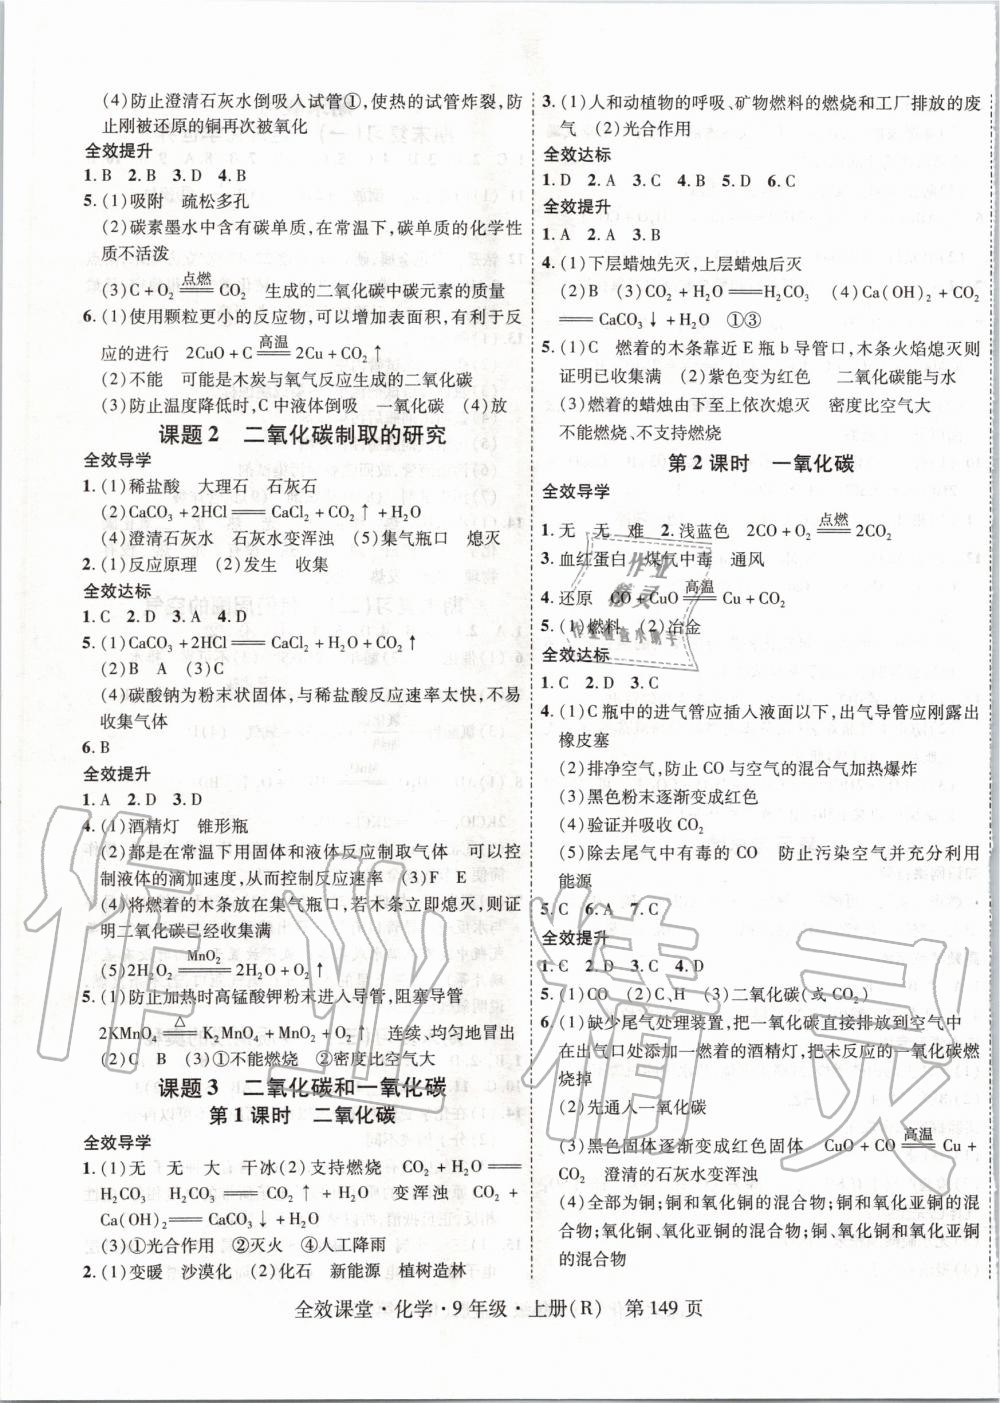 (4)防止澄清石灰水倒吸入试管①,使热的试管炸裂,防
止刚被还原的铜再次被氧化
全效提升
1.B 2.B 3.D 4.B
5.(1)吸附 疏松多孔
(2)碳素墨水中含有碳单质,在常温下,碳单质的化学性
质不活泼
(3)C+O₂ 点燃═ CO₂ 生成的二氧化碳中碳元素的质量
6.(1)使用颗粒更小的反应物,可以增加表面积,有利于反
应的进行 2CuO+C 高温═ 2Cu+CO₂↑
(2)不能 可能是木炭与氧气反应生成的二氧化碳
(3)防止温度降低时,C中液体倒吸 一氧化碳 (4)放
课题2 二氧化碳制取的研究
全效导学
1.(1)稀盐酸 大理石 石灰石
(2)CaCO₃+2HCl═CaCl₂+CO₂↑+H₂O
(4)澄清石灰水 石灰水变浑浊 (5)集气瓶口 熄灭
2.(1)反应原理 (2)发生 收集
全效达标
1.C 2.D 3.A 4.D
5.(1)CaCO₃+2HCl═CaCl₂+H₂O+CO₂↑
(2)B A (3)C
(4)碳酸钠为粉末状固体,与稀盐酸反应速率太快,不易
收集气体
6.B
全效提升
1.A 2.D 3.D
4.(1)酒精灯 锥形瓶
(2)都是在常温下用固体和液体反应制取气体 可以控
制液体的滴加速度,从而控制反应速率 (3)F E
(4)将燃着的木条放在集气瓶口,若木条立即熄灭,则证
明二氧化碳已经收集满
(5)2H₂O₂ MnO₂═ 2H₂O+O₂↑
5.(1)防止加热时高锰酸钾粉末进入导管,阻塞导管
2KMnO₄ △═ K₂MnO₄+MnO₂+O₂↑ 连续、均匀地冒出
(2)C B (3)①不能燃烧 ②密度比空气大
课题3 二氧化碳和一氧化碳
第1课时 二氧化碳
全效导学
1.(1)无 无 大 干冰(2)支持燃烧 CO₂+H₂O═
H₂CO₃ H₂CO₃═CO₂↑+H₂O 变浑浊 CO₂+
Ca(OH)₂═CaCO₃↓+H₂O
(3)①光合作用 ②灭火 ④人工降雨
2.(1)变暖 沙漠化 (2)化石 新能源 植树造林
3.(1)人和动植物的呼吸、矿物燃料的燃烧和工厂排放的废
气 (2)光合作用
全效达标
1.D 2.A 3.C 4.B 5.D 6.C
全效提升
1.A 2.A 3.B
4.(1)下层蜡烛先灭,上层蜡烛后灭
(2)B (3)CO₂+H₂O═H₂CO₃ (4)Ca(OH)₂+CO₂
═CaCO₃↓+H₂O ①③
5.(1)C 燃着的木条靠近E瓶b导管口,木条火焰熄灭则
证明已收集满 (2)紫色变为红色 二氧化碳能与水
(3)燃着的蜡烛由下至上依次熄灭 密度比空气大
不能燃烧、不支持燃烧
第2课时 一氧化碳
全效导学
1.无 无 难 2.浅蓝色 2CO+O₂ 点燃═ 2CO₂
3.血红蛋白 煤气中毒 通风
4.还原 CO+CuO 高温═ Cu+CO₂
5.(1)燃料 (2)冶金
全效达标
1.C 2.D 3.C
4.(1)C瓶中的进气管应插入液面以下,出气导管应刚露出
橡皮塞
(2)排净空气,防止CO与空气的混合气加热爆炸
(3)黑色粉末逐渐变成红色
(4)验证并吸收CO₂
(5)除去尾气中有毒的CO 防止污染空气并充分利用
能源
5.C 6.A 7.C
全效提升
1.C 2.D 3.C 4.D
5.(1)CO (2)C、H (3)二氧化碳(或CO₂)
6.(1)缺少尾气处理装置,把一氧化碳直接排放到空气中
在出气口处添加一燃着的酒精灯,把未反应的一氧化碳燃
烧掉
(2)先通人一氧化碳
(3)黑色固体逐渐变成红色固体 CuO+CO 高温═ Cu+
CO₂ 澄清的石灰水变浑浊
(4)全部为铜;铜和氧化铜的混合物;铜和氧化亚铜的混
合物;氧化铜、氧化亚铜的混合物;铜、氧化铜和氧化亚铜
的混合物
全效课堂·化学·9年级·上册(R) 第149页
作业精灵
作业
精灵